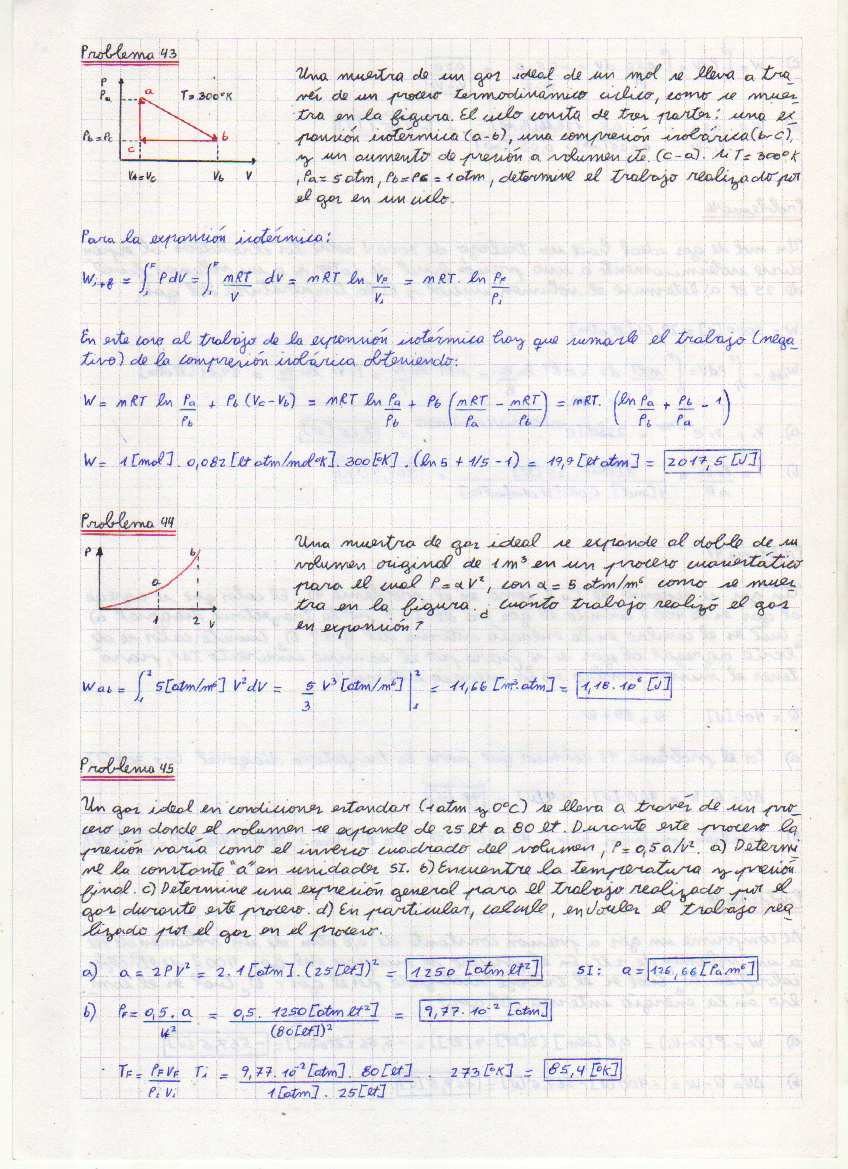 Problema 43
P
Pa
a
T = 300°K
Pb = Pc
b
c
VA = VC
Vb
V
Una muestra de un gas ideal de un mol se lleva a tra-
vés de un proceso termodinámico cíclico, como se mues-
tra en la figura. El ciclo consta de tres partes: una ex-
pansión isotérmica (a-b), una compresión isobárica (b-c),
y un aumento de presión a volumen cte. (c-a). si T = 300°K
, Pa = 5 atm, Pb = Pc = 1 atm, determine el trabajo realizado por
el gas en un ciclo.
Para la expansión isotérmica:
Wi→f = ∫i^F PdV = ∫i^F nRT/V dV = nRT ln VF/Vi = nRT. ln PF/Pi
En este caso al trabajo de la expansión isotérmica hay que sumarle el trabajo (nega-
tivo) de la compresión isobárica obteniendo:
W = nRT ln Pa/Pb + Pb (Vc - Vb) = nRT ln Pa/Pb + Pb (nRT/Pa - nRT/Pb) = nRT. (ln Pa/Pb + Pb/Pa - 1)
W = 1 [mol] . 0,082 [lt atm/mol°K] . 300 [°K] . (ln 5 + 1/5 - 1) = 19,9 [lt atm] = 2017,5 [J]
Problema 44
P
b
a
1
2
V
Una muestra de gas ideal se expande al doble de su
volumen original de 1 m³ en un proceso cuasiestático
para el cual P = αV², con α = 5 atm/m⁶ como se mues-
tra en la figura. ¿ Cuánto trabajo realizó el gas
en expansión?
Wab = ∫1^2 5 [atm/m⁶] V² dV = 5/3 V³ [atm/m⁶] |1^2 = 11,66 [m³.atm] = 1,18 . 10⁶ [J]
Problema 45
Un gas ideal en condiciones estandar (1 atm y 0°C) se lleva a través de un pro-
ceso en donde el volumen se expande de 25 lt a 80 lt. Durante este proceso la
presión varía como el inverso cuadrado del volumen, P = 0,5 a/V². a) Determi-
ne la constante "a" en unidades SI. b) Encuentre la temperatura y presión
final. c) Determine una expresión general para el trabajo realizado por el
gas durante este proceso. d) En particular, calcule, en Joules el trabajo rea-
lizado por el gas en el proceso.
a) a = 2PV² = 2 . 1 [atm] . (25 [lt])² = 1250 [atm lt²] SI: a = 126,66 [Pa.m⁶]
b) PF = 0,5 . a/VF² = 0,5 . 1250 [atm lt²]/(80 [lt])² = 9,77 . 10⁻² [atm]
TF = PF VF/Pi Vi Ti = 9,77 . 10⁻² [atm] . 80 [lt]/1 [atm] . 25 [lt] . 273 [°K] = 85,4 [°K]